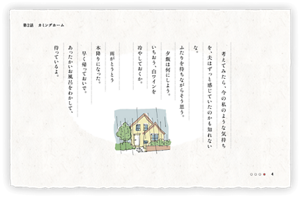 第2話 カミングホーム
考えてみたら、今の私のような気持ち
を、夫はずっと感じていたのかも知れない。
ふたりを待ちながらそう思う。
夕飯は何にしよう。
いちおう、白ワインを
冷やしておくか。
雨がとうとう
本降りになった。
早く帰っておいで。
あったかいお風呂をわかして、
待っているよ。
4